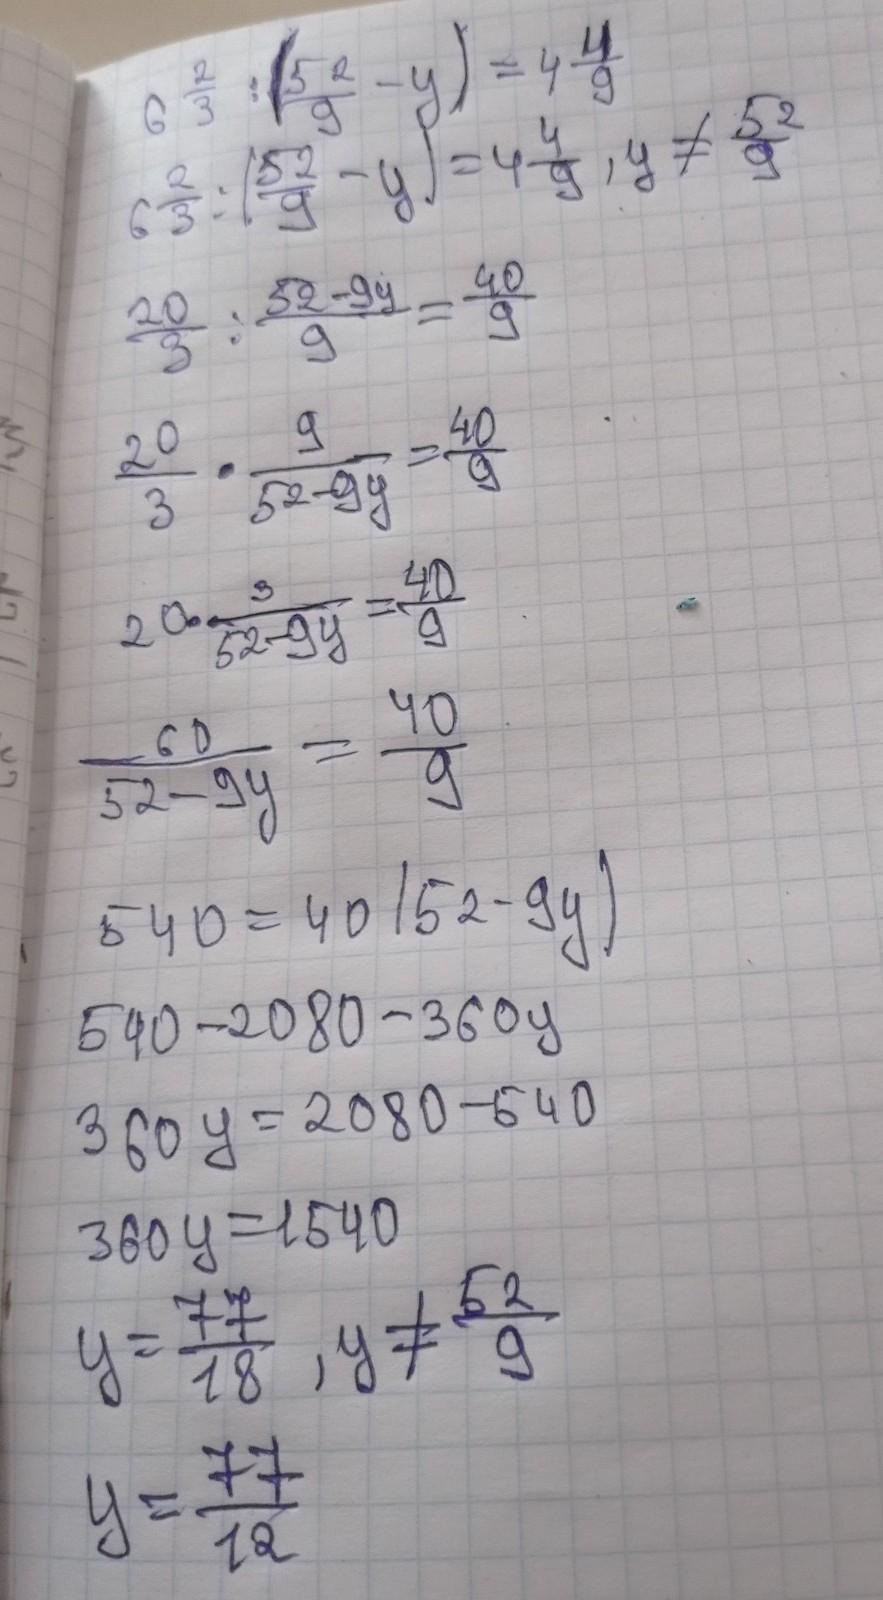 6 2/3 : (52/9 - y) = 4 4/9
6 2/3 : (52/9 - y) = 4 4/9 , y ≠ 52/9
20/3 : 52-9y/9 = 40/9
20/3 · 9/52-9y = 40/9
20 · 3/52-9y = 40/9
60/52-9y = 40/9
540 = 40(52-9y)
540-2080-360y
360y = 2080-540
360y = 1540
y = 77/18 , y ≠ 52/9
y = 77/12